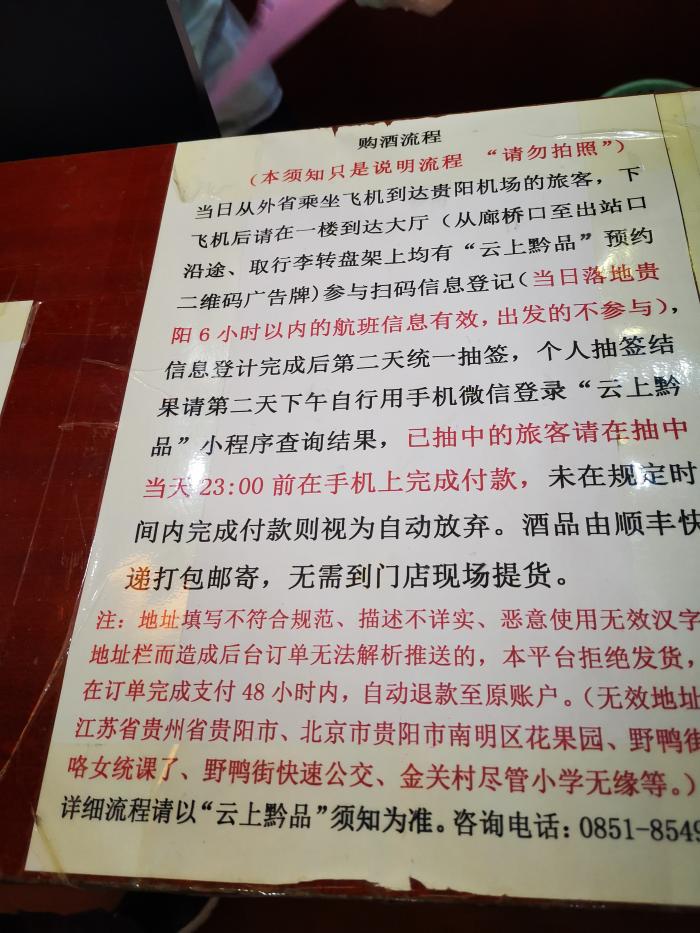 购酒流程
（本须知只是说明流程 “请勿拍照”）
当日从外省乘坐飞机到达贵阳机场的旅客，下
飞机后请在一楼到达大厅（从廊桥口至出站口
沿途、取行李转盘架上均有“云上黔品”预约
二维码广告牌)参与扫码信息登记(当日落地贵
阳 6 小时以内的航班信息有效,出发的不参与)，
信息登计完成后第二天统一抽签，个人抽签结
果请第二天下午自行用手机微信登录“云上黔
品”小程序查询结果，已抽中的旅客请在抽中
当天 23:00 前在手机上完成付款，未在规定时
间内完成付款则视为自动放弃。酒品由顺丰快
递打包邮寄，无需到门店现场提货。
注：地址填写不符合规范、描述不详实、恶意使用无效汉字
地址栏而造成后台订单无法解析推送的，本平台拒绝发货，
在订单完成支付 48 小时内，自动退款至原账户。（无效地址
江苏省贵州省贵阳市、北京市贵阳市南明区花果园、野鸭街
咯女统课了、野鸭街快速公交、金关村尽管小学无缘等。）
详细流程请以“云上黔品”须知为准。咨询电话：0851-8549